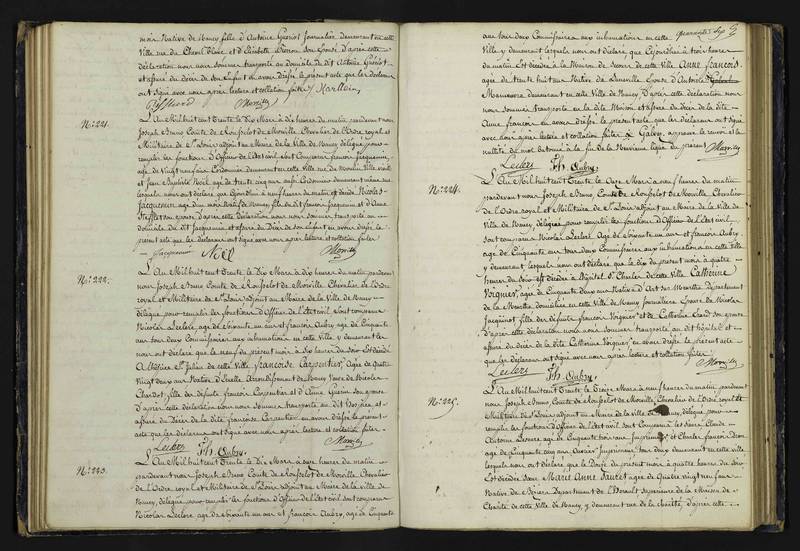 moir Native de Nancy fille d'Antoine Guériot Journalier demeurant en cette
Ville rue du Cheval blanc et d'Elisabeth son épouse D'après cette
déclaration nous nous sommes transporté au domicile du dit Antoine Guériot
et assuré du décès de son Enfant en avons dressé le présent acte que les déclarans
ont signé avec nous après lecture et collation faites
N.º 221.
L'An Mil huit cent Trente le Dix Mars à dix heures du matin pardevant nous
Joseph Bruno Comte de Rouselot de Morville Chevalier de l'Ordre royal et
Militaire de S.t Louis adjoint au Maire de la Ville de Nancy délégué pour
remplir les fonctions d'Officier de l'Etat civil, sont Comparus françois Jacquemin,
age de Vingt neuf ans Cordonnier demeurant en cette Ville rue du Moulin
et Jean Baptiste Noël age de trente cinq ans Cordonnier demeurant même rue
lesquels nous ont déclaré que aujourd'hui à neuf heures du matin est décédé Nicolas
Jacquemin age d'un mois Natif de Nancy fils du dit françois Jacquemin et d'Anne
son épouse d'après cette déclaration nous nous sommes transporté au
domicile du dit Jacquemin et assuré du Décès de son Enfant en avons dressé le
présent acte que les déclarans ont signé avec nous après lecture et collation faites
Jacquemin Noël Morville
N.º 222.
L'An Mil huit cent Trente le Dix Mars à dix heures du matin pardevant
nous Joseph Bruno Comte de Rouselot de Morville Chevalier de l'Ordre
royal et Militaire de S.t Louis adjoint au Maire de la Ville de Nancy
délégué pour remplir les fonctions d'Officier de l'Etat civil, sont comparus
Nicolas Leclerc, age de Soixante un ans et françois Aubry age de Cinquante
ans tous deux Commissaires aux inhumations en cette Ville, y demeurant lesquels
nous ont déclaré que le neuf du présent mois à Six heures du soir Est décédée
à l'hospice S.t Julien de cette Ville françoise Carpentier, Agée de Quatre
Vingt deux ans Native d' Arrondissement de Nancy Veuve de Nicolas
Chardot, fille des défunts françois Carpentier et d'Anne Guérin son épouse
D'après cette déclaration nous nous sommes transporté au dit Hospice et
assuré du Décès de la dite françoise Carpentier en avons dressé le présent
acte que les déclarans ont signé avec nous après lecture et collation faites
Leclerc Fh. Aubry Morville
N.º 223.
L'An Mil huit cent Trente le Dix Mars à onze heures du matin
pardevant nous Joseph Bruno Comte de Rouselot de Morville Chevalier
de l'Ordre royal et Militaire de S.t Louis adjoint au Maire de la Ville de
Nancy, délégué pour remplir les fonctions d'Officier de l'Etat civil sont comparus
Nicolas Leclerc age de Soixante un ans et françois Aubry, age de Cinquante
quarante Sept
ans tous deux Commissaires aux inhumations en cette
Ville y demeurant lesquels nous ont déclaré que Cejourd'hui à trois heures
du matin Est décédée à la Maison de Secours de cette Ville Anne françois
agée de trente huit ans Native de Lunéville Epouse d'Antoine
Manœuvre demeurant en cette Ville de Nancy, D'après cette déclaration nous
nous sommes transporté en la dite Maison et assuré du décès de la dite
Anne françois en avons dressé le présent acte que les déclarans ont signé
avec nous après lecture et collation faites approuvé le renvoi et la
nullité du mot Raturé à la fin de la neuvième ligne du présent Morville
Leclerc Fh. Aubry
N.º 224.
L'An Mil huit cent Trente le Onze Mars à neuf heures du matin
pardevant nous Joseph Bruno Comte de Rouselot de Morville Chevalier
de l'Ordre royal et Militaire de S.t Louis adjoint au Maire de la Ville
de Nancy, délégué pour remplir les fonctions d'Officier de l'Etat civil,
sont comparus Nicolas Leclerc Agé de Soixante un ans, et françois Aubry
age de Cinquante ans tous deux Commissaires aux inhumations en cette Ville
y demeurant lesquels nous ont déclaré que le dix du présent mois à quatre
heures du soir Est décédée à l'hôpital S.t Charles de cette Ville Catherine
Voignier, agée de Cinquante Deux ans Native d'Art sur Meurthe Département
de la Meurthe domiciliée en cette Ville de Nancy Journalière Epouse de Nicolas
Jacquinot fille des défunts françois Voignier et de Catherine son épouse
D'après cette déclaration nous nous sommes transporté au dit hôpital et
assuré du décès de la dite Catherine Voignier, en avons dressé le présent acte
que les déclarans ont signé avec nous après lecture et collation faites
Leclerc Fh. Aubry Morville
N.º 225.
L'An Mil huit cent Trente le Treize Mars à neuf heures du matin pardevant
nous Joseph Bruno Comte de Rouselot de Morville, Chevalier de l'Ordre royal et
Militaire de S.t Louis adjoint au Maire de la ville de Nancy, délégué pour
remplir les fonctions d'Officier de l'Etat civil sont Comparus les Sieurs Claude
Antoine age de Cinquante trois ans Imprimeur et Charles françois
age de Cinquante cinq ans, Ouvrier Imprimeur, tous deux demeurant en cette ville
lesquels nous ont déclaré que le Douze du présent mois à quatre heures du soir
Est décédée Dame Marie Anne Fautet agée de Quatre Vingt neuf ans
Native de Béziers Département de l'Hérault supérieure de la Maison de
Charité de cette Ville de Nancy, y demeurant rue de la charité, D'après cette